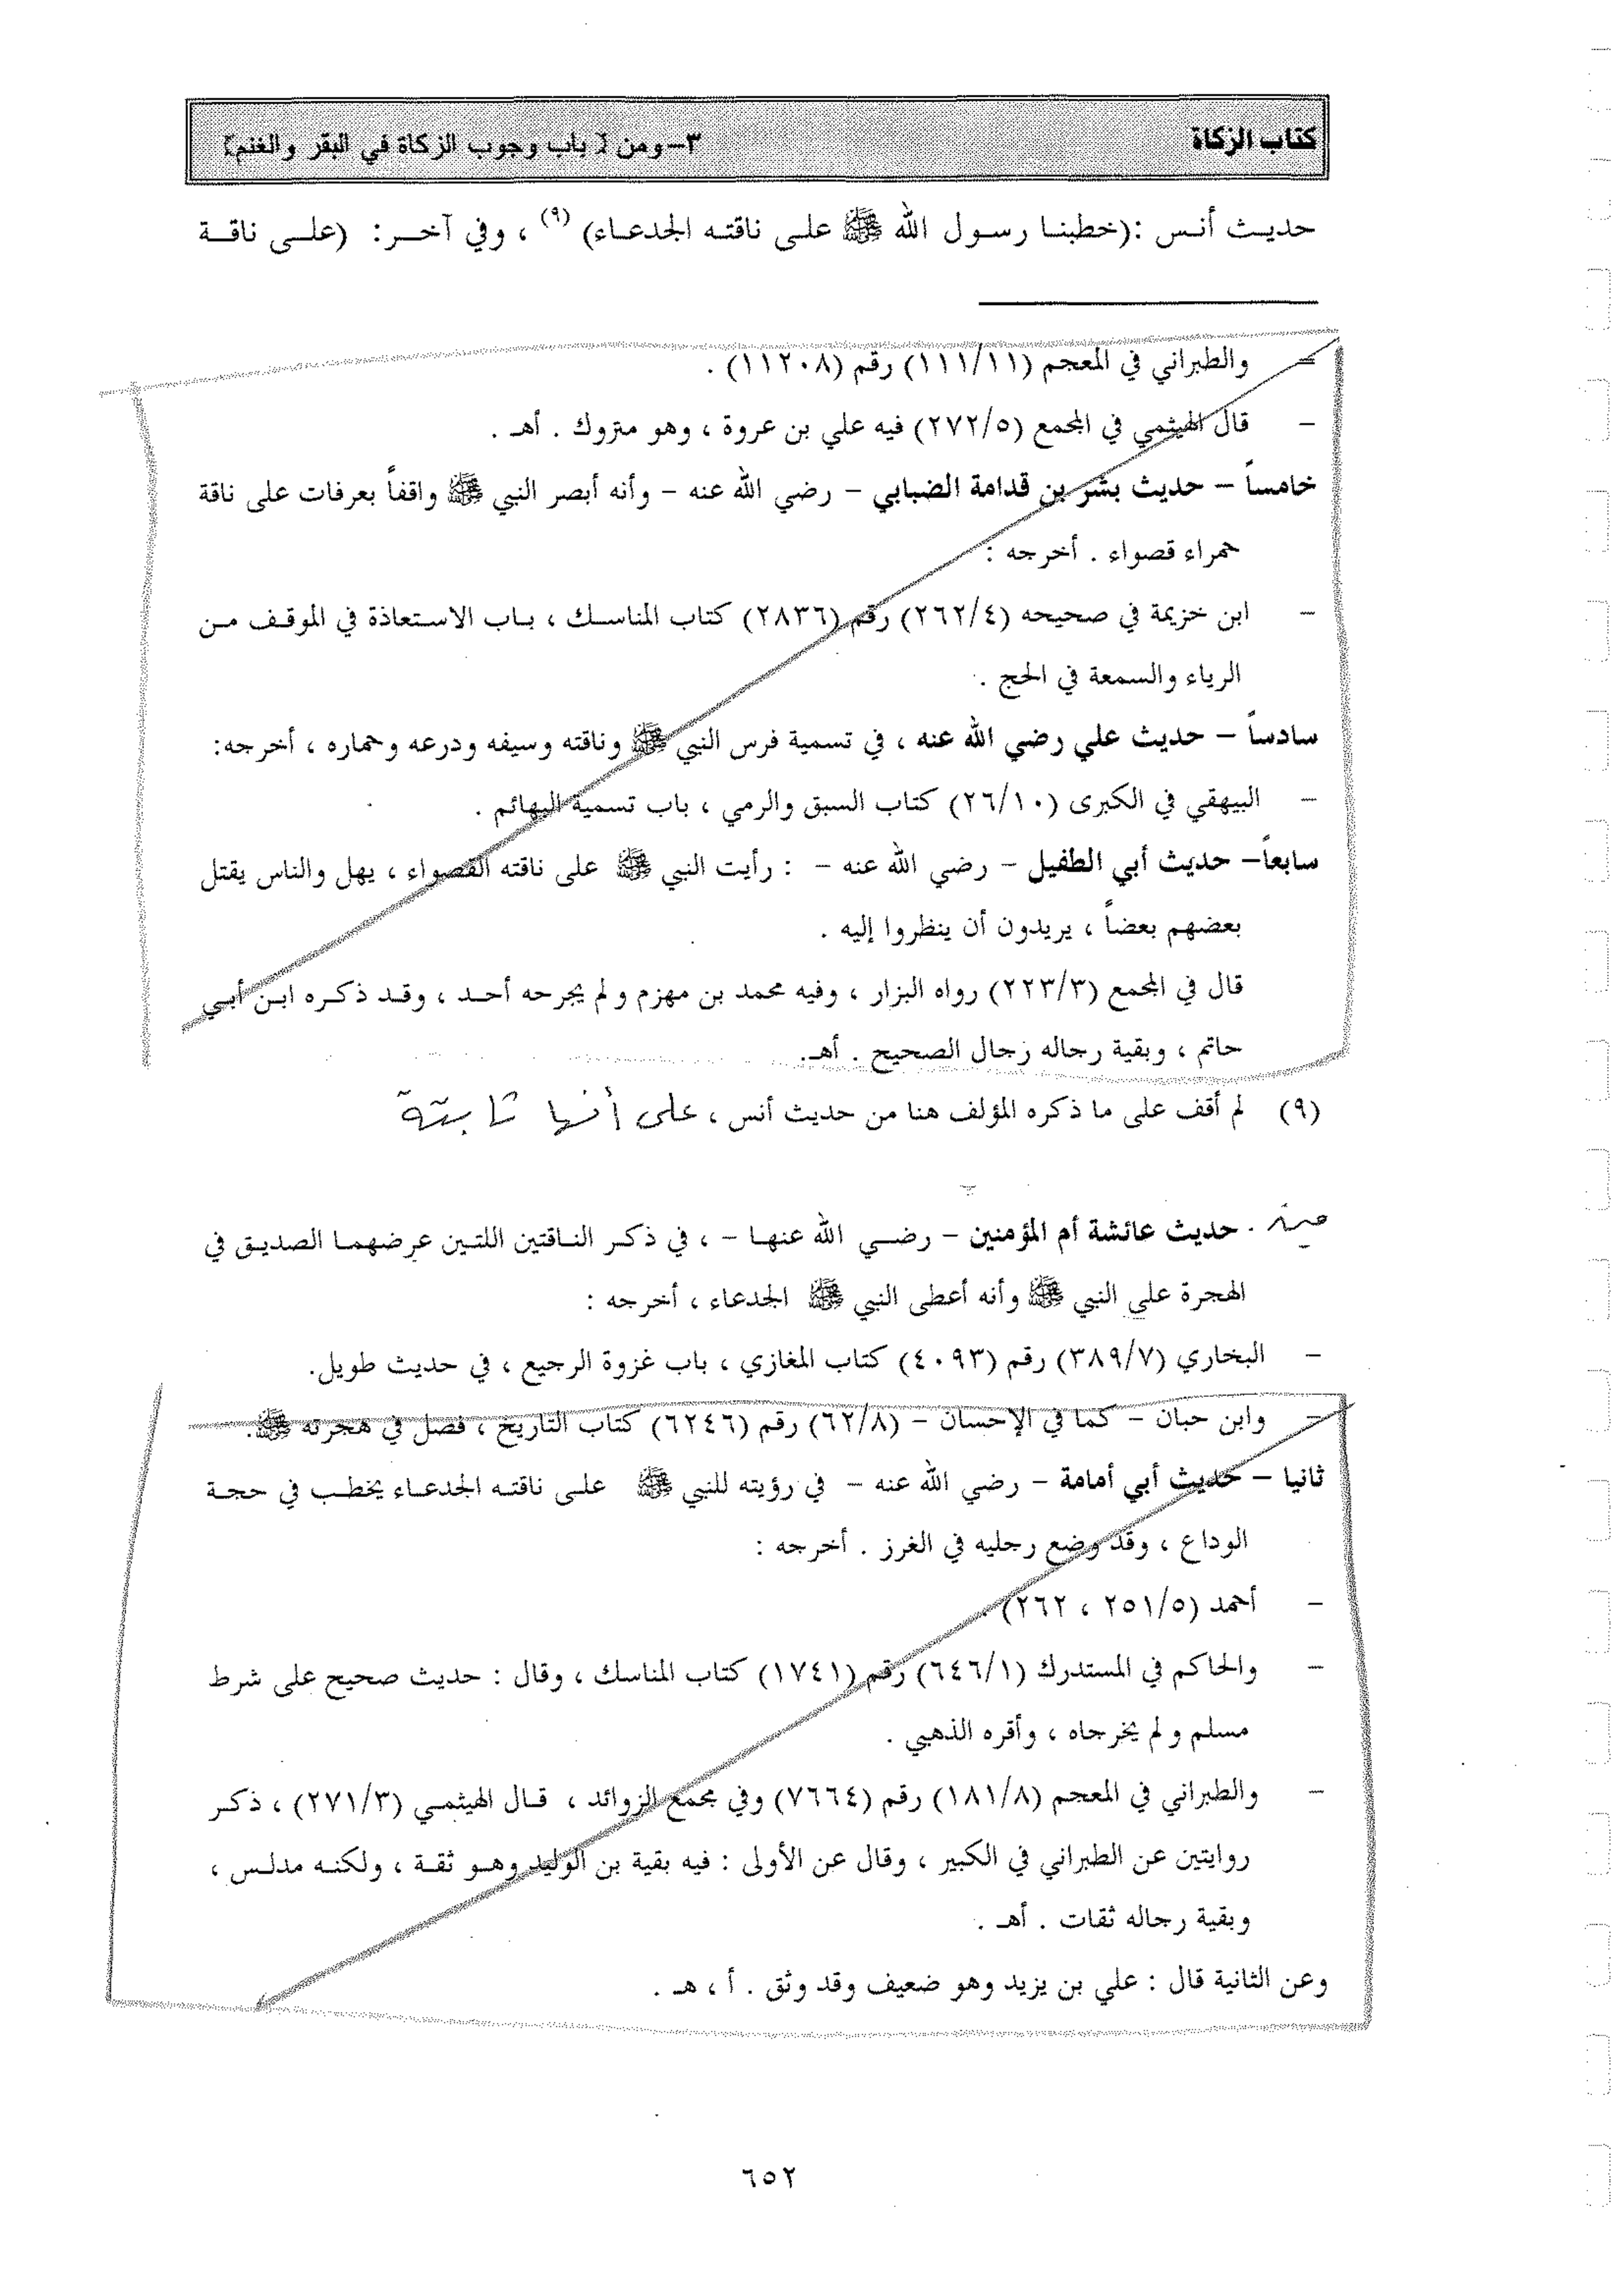 كتاب الزكاة ٣-ومن [ باب وجوب الزكاة في البقر والغنم]
حديث أنس :(خطبنا رسول الله ﷺ على ناقته الجدعاء) (٩) ، وفي آخر: (على ناقة
= والطبراني في المعجم (١١١/١١) رقم (١١٢٠٨) .
- قال الهيثمي في المجمع (٢٧٢/٥) فيه علي بن عروة ، وهو متروك . أهـ .
خامساً – حديث بشر بن قدامة الضبابي – رضي الله عنه – وأنه أبصر النبي ﷺ واقفاً بعرفات على ناقة
حمراء قصواء . أخرجه :
- ابن خزيمة في صحيحه (٢٦٢/٤) رقم (٢٨٣٦) كتاب المناسك ، باب الاستعاذة في الموقف من
الرياء والسمعة في الحج .
سادساً – حديث علي رضي الله عنه ، في تسمية فرس النبي ﷺ وناقته وسيفه ودرعه وحماره ، أخرجه:
- البيهقي في الكبرى (٢٦/١٠) كتاب السبق والرمي ، باب تسمية البهائم .
سابعاً– حديث أبي الطفيل – رضي الله عنه – : رأيت النبي ﷺ على ناقته القصواء ، يهل والناس يقتل
بعضهم بعضاً ، يريدون أن ينظروا إليه .
قال في المجمع (٢٢٣/٣) رواه البزار ، وفيه محمد بن مهزم ولم يجرحه أحد ، وقد ذكره ابن أبي
حاتم ، وبقية رجاله رجال الصحيح . أهـ.
(٩) لم أقف على ما ذكره المؤلف هنا من حديث أنس ، على أنها ثابتة
. حديث عائشة أم المؤمنين – رضي الله عنها – ، في ذكر الناقتين اللتين عرضهما الصديق في
الهجرة على النبي ﷺ وأنه أعطى النبي ﷺ الجدعاء ، أخرجه :
- البخاري (٣٨٩/٧) رقم (٤٠٩٣) كتاب المغازي ، باب غزوة الرجيع ، في حديث طويل.
- وابن حبان – كما في الإحسان – (٦٢/٨) رقم (٦٢٤٦) كتاب التاريخ ، فصل في هجرته ﷺ.
ثانيا – حديث أبي أمامة – رضي الله عنه – في رؤيته للنبي ﷺ على ناقته الجدعاء يخطب في حجة
الوداع ، وقد وضع رجليه في الغرز . أخرجه :
- أحمد (٢٥١/٥ ، ٢٦٢) .
- والحاكم في المستدرك (٦٤٦/١) رقم (١٧٤١) كتاب المناسك ، وقال : حديث صحيح على شرط
مسلم ولم يخرجاه ، وأقره الذهبي .
- والطبراني في المعجم (١٨١/٨) رقم (٧٦٦٤) وفي مجمع الزوائد ، قال الهيثمي (٢٧١/٣) ، ذكر
روايتين عن الطبراني في الكبير ، وقال عن الأولى : فيه بقية بن الوليد وهو ثقة ، ولكنه مدلس ،
وبقية رجاله ثقات . أهـ .
وعن الثانية قال : علي بن يزيد وهو ضعيف وقد وثق . أ ، هـ .
٦٥٢